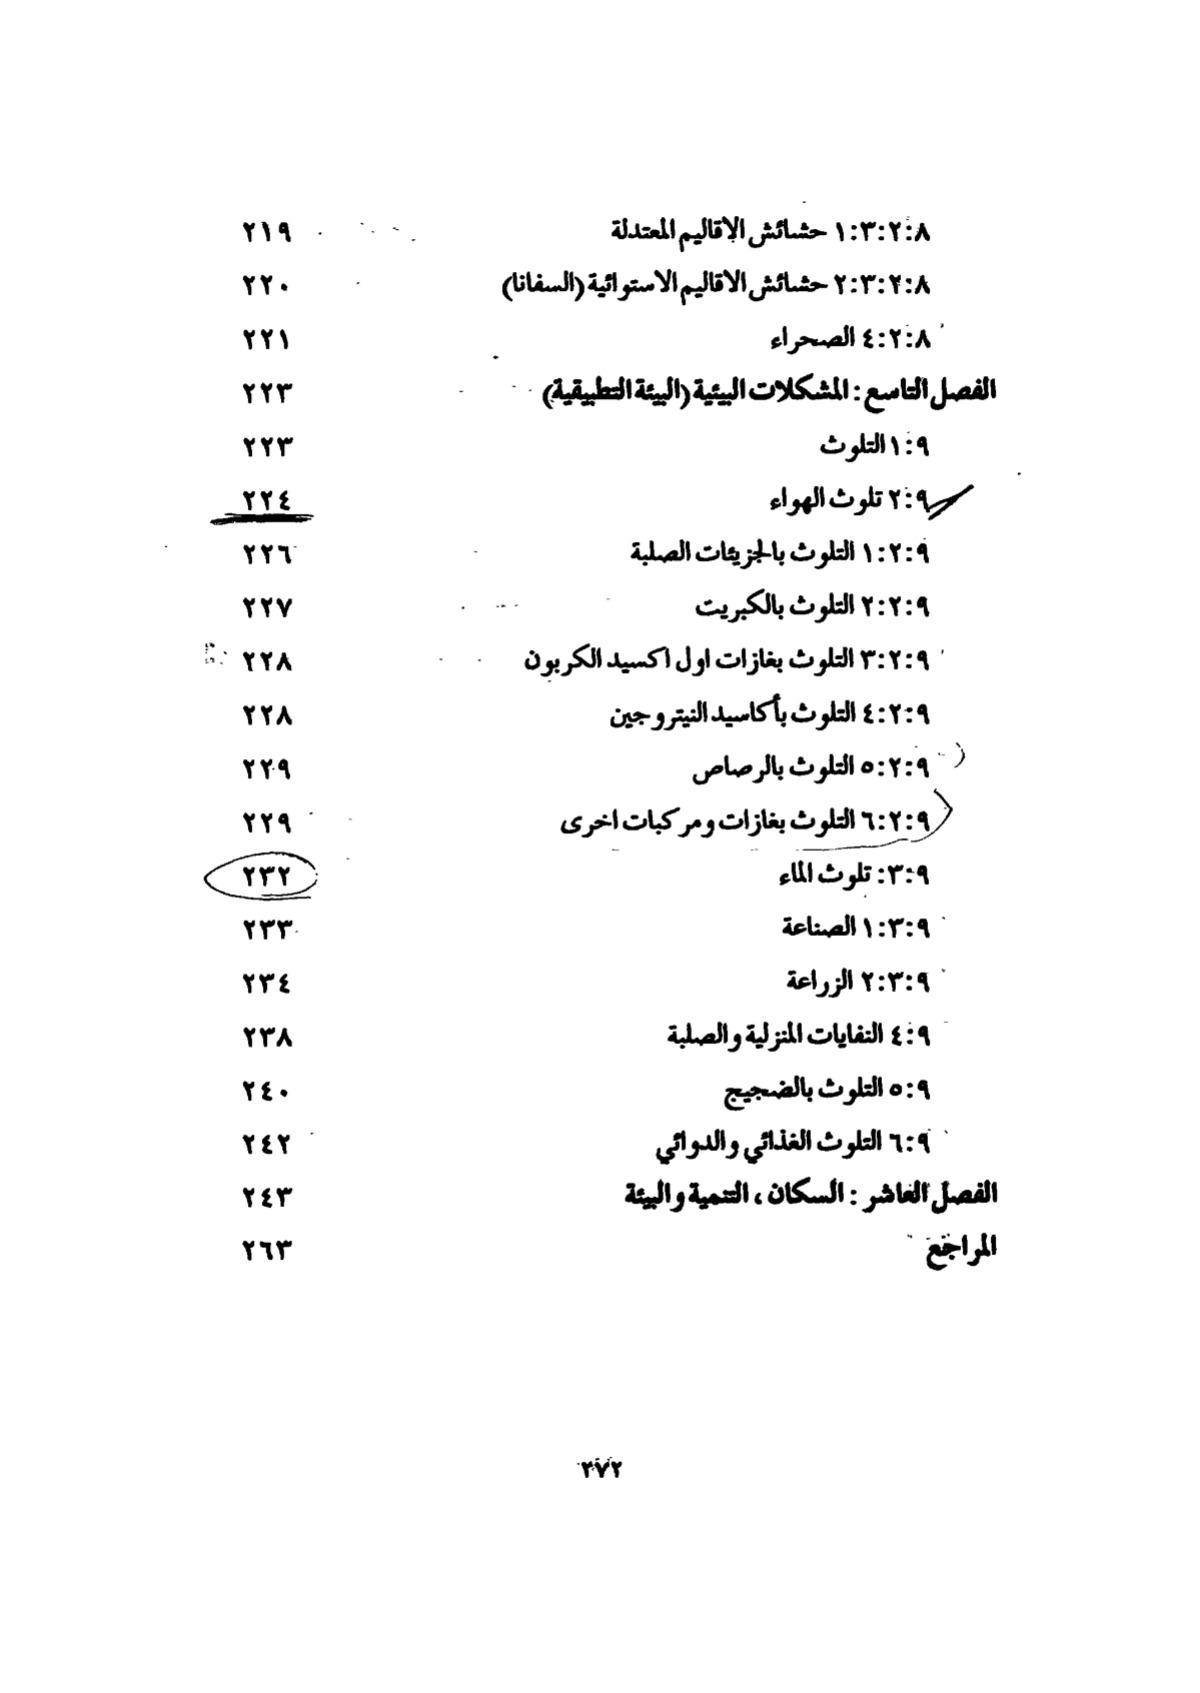 ٨:٢:٣:١ حشائش الاقاليم المعتدلة ٢١٩
٨:٢:٣:٢ حشائش الاقاليم الاستوائية (السفانا) ٢٢٠
٨:٢:٤ الصحراء ٢٢١
الفصل التاسع: المشكلات البيئية (البيئة التطبيقية) ٢٢٣
٩:١ التلوث ٢٢٣
٩:٢ تلوث الهواء ٢٢٤
٩:٢:١ التلوث بالجزيئات الصلبة ٢٢٦
٩:٢:٢ التلوث بالكبريت ٢٢٧
٩:٢:٣ التلوث بغازات اول اكسيد الكربون ٢٢٨
٩:٢:٤ التلوث بأكاسيد النيتروجين ٢٢٨
٩:٢:٥ التلوث بالرصاص ٢٢٩
٩:٢:٦ التلوث بغازات ومركبات اخرى ٢٢٩
٩:٣: تلوث الماء ٢٣٢
٩:٣:١ الصناعة ٢٣٣
٩:٣:٢ الزراعة ٢٣٤
٩:٤ النفايات المنزلية والصلبة ٢٣٨
٩:٥ التلوث بالضجيج ٢٤٠
٩:٦ التلوث الغذائي والدوائي ٢٤٢
الفصل العاشر: السكان، التنمية والبيئة ٢٤٣
المراجع ٢٦٣
٢٧٢